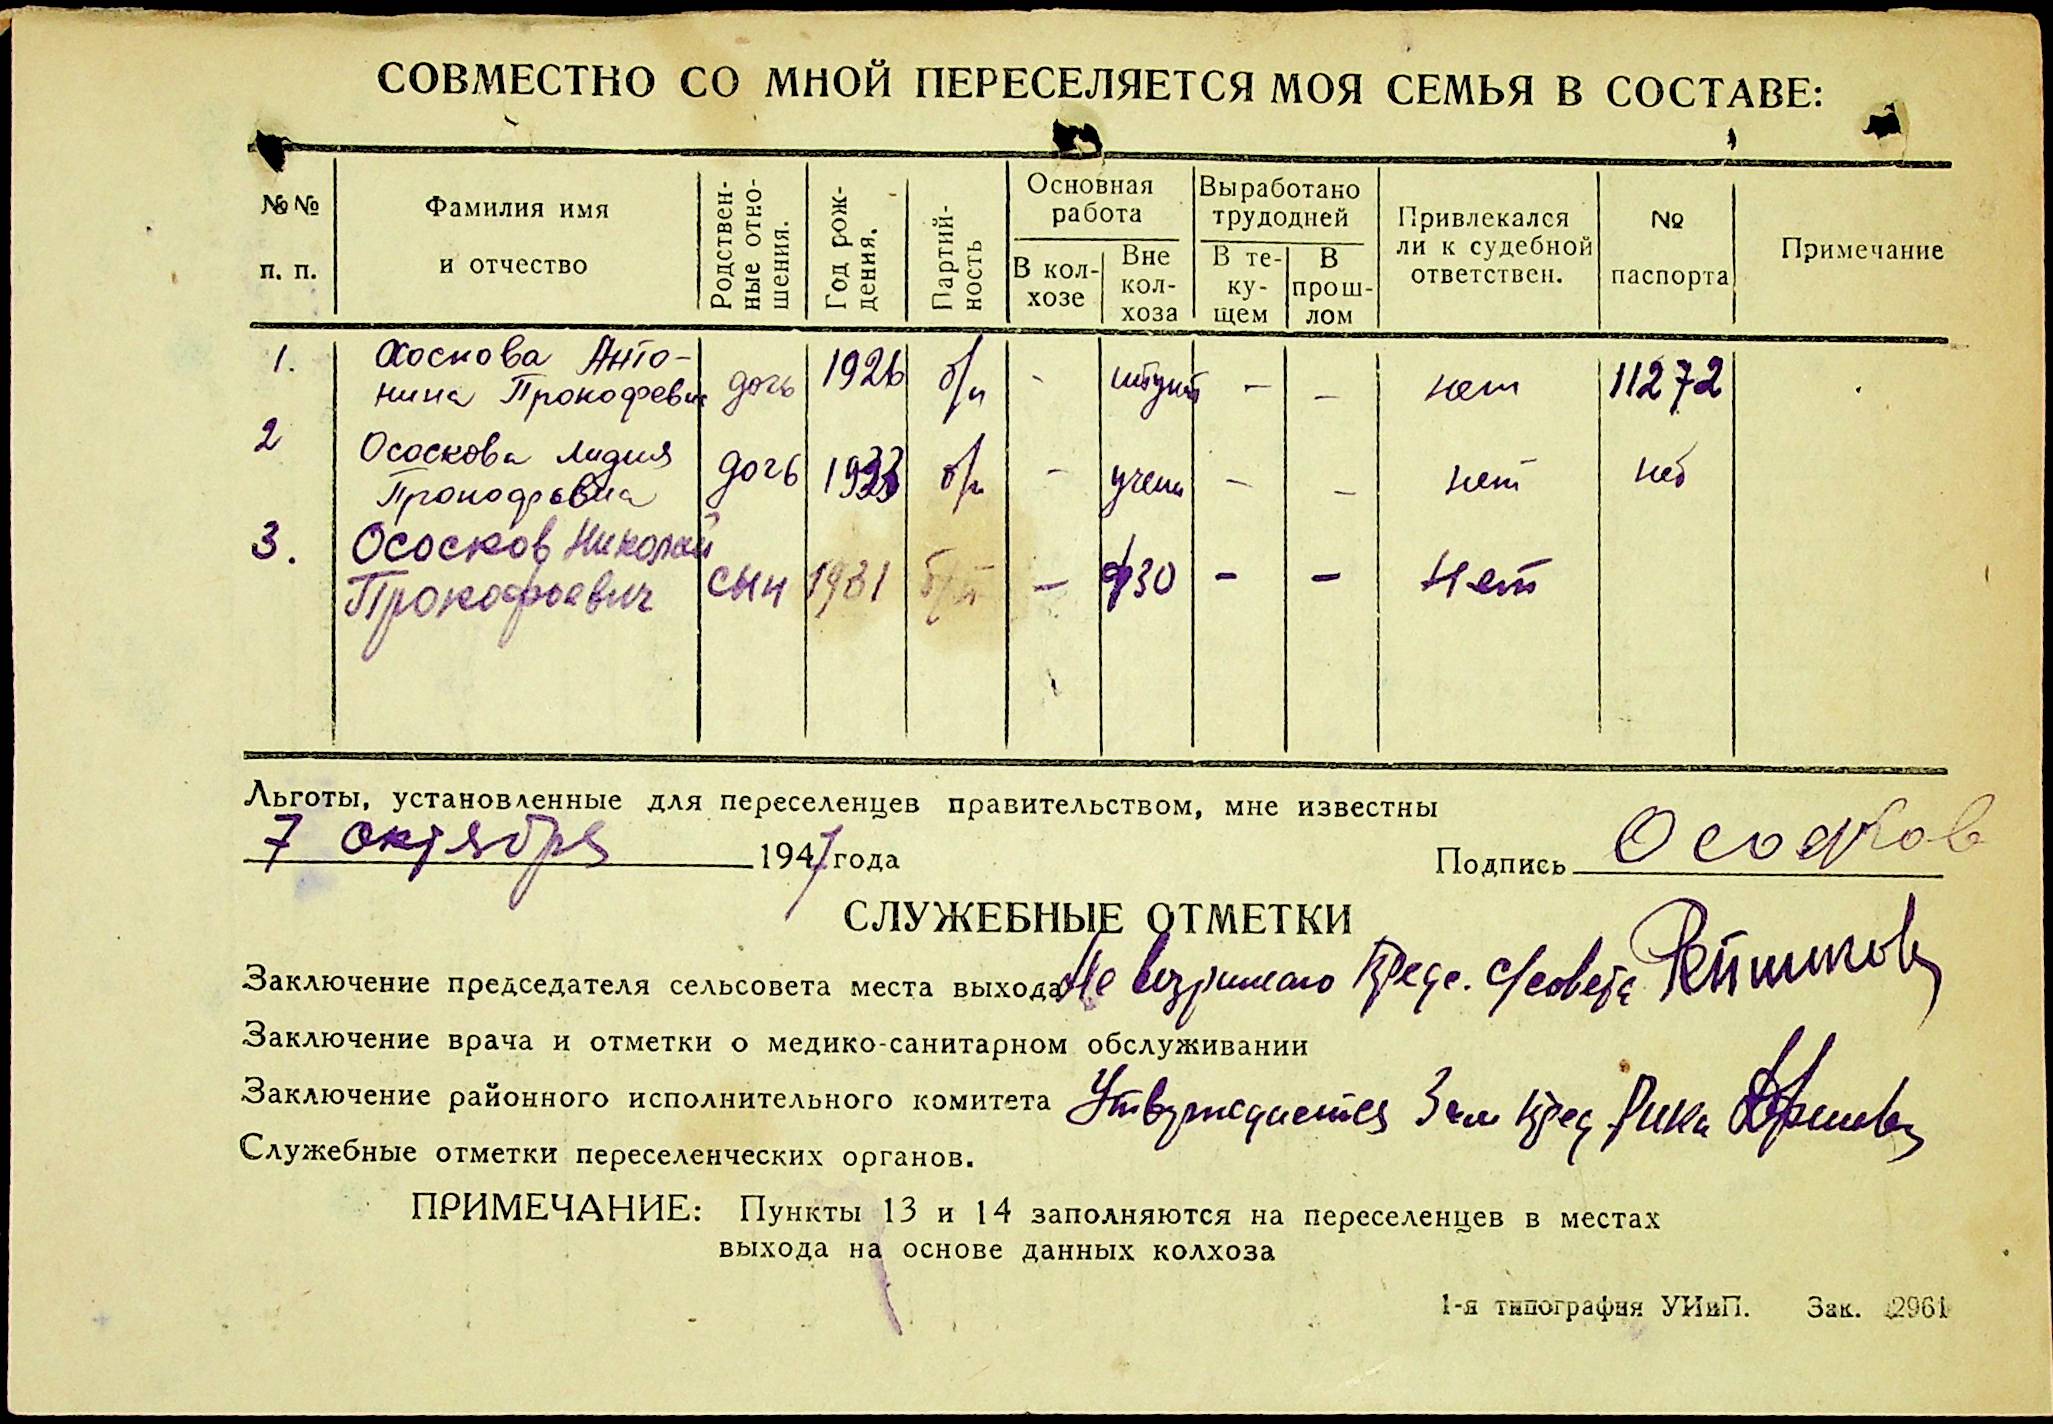 СОВМЕСТНО СО МНОЙ ПЕРЕСЕЛЯЕТСЯ МОЯ СЕМЬЯ В СОСТАВЕ:
№№ п. п.
Фамилия имя и отчество
Родствен-
ные отно-
шения.
Год рож-
дения.
Партий-
ность
Основная
работа
В кол-
хозе
Вне
кол-
хоза
Выработано
трудодней
В те-
ку-
щем
В
прош-
лом
Привлекался
ли к судебной
ответствен.
№
паспорта
Примечание
1. Ососкова Анто-
нина Прокофевна дочь 1926 б/п - - - нет 11272
2 Ососкова Лидия
Прокофевна дочь 1933 б/п - учени - - нет нет
3. Ососков Николай
Прокофьевич сын 1931 б/п - ФЗО - - Нет
Льготы, установленные для переселенцев правительством, мне известны
7 октября 1947 года
Подпись Ососков
СЛУЖЕБНЫЕ ОТМЕТКИ
Заключение председателя сельсовета места выхода Не Пред. с/совета
Заключение врача и отметки о медико-санитарном обслуживании
Заключение районного исполнительного комитета Утверждается Зам пред Рика
Служебные отметки переселенческих органов.
ПРИМЕЧАНИЕ: Пункты 13 и 14 заполняются на переселенцев в местах
выхода на основе данных колхоза
1-я типография УИиП. Зак. 2961